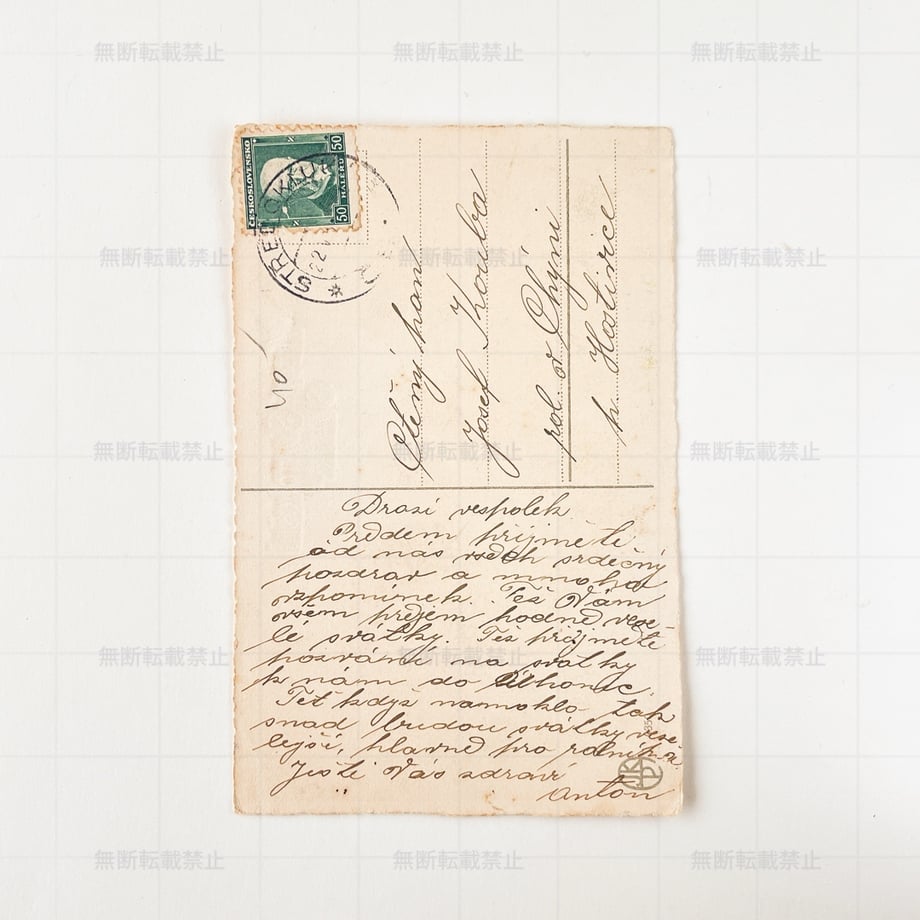 ČESKOSLOVENSKO
50 HALÉŘŮ 50
22
Ctěný pan
Josef Kouba
rol. v Chýni
p. Hostivice
40
Drazí vespolek
Předem přijměte
od nás všech srdečný
pozdrav a mnoho
vzpomínek. Též Vám
všem přejem hodně vese-
lé svátky. Též přijměte
pozvání na svátky
k nám do
Teť když namoklo tak
snad budou svátky vese-
lejší, hlavně pro rolníka.
Ještě Vás zdraví
Anton
無断転載禁止 無断転載禁止 無断転載禁止
無断転載禁止 無断転載禁止 無断転載禁止
無断転載禁止 無断転載禁止 無断転載禁止
無断転載禁止 無断転載禁止 無断転載禁止
無断転載禁止 無断転載禁止 無断転載禁止